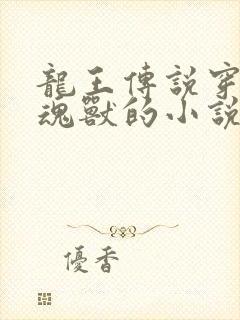 龍王傳説穿
魂獸的小説
優香